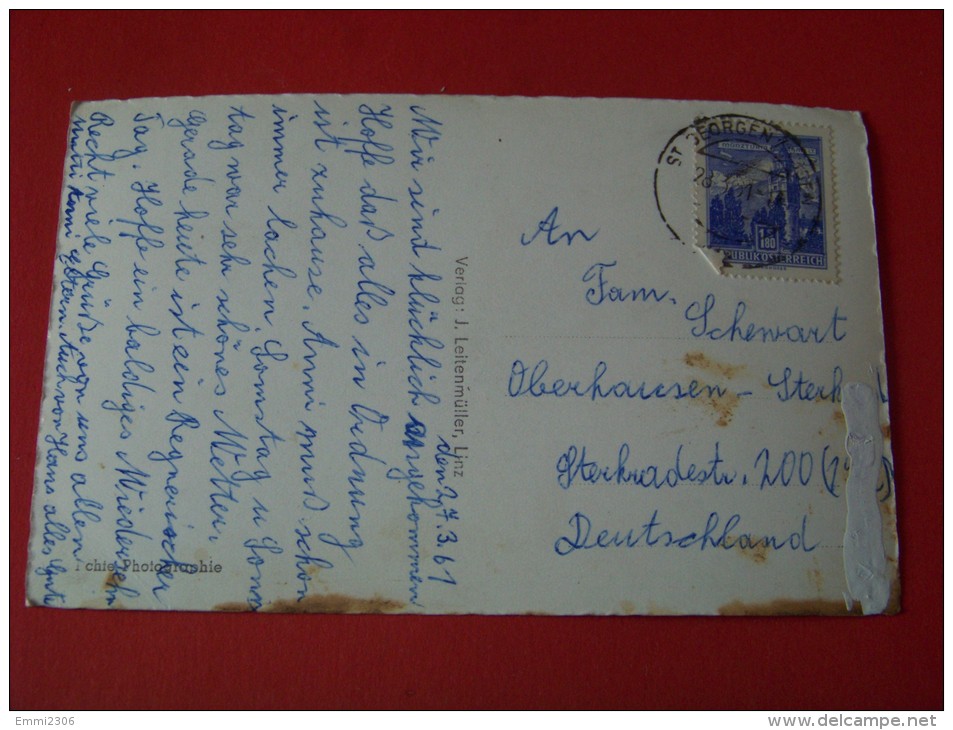 den 27.3.61
Wir sind klücklich angekommen
Hoffe daß alles in Ordnung
ist zuhause. Anni muß schon
immer lachen. Somstag u Sonn
tag war sehr schönes Wetter,
Gerade heute ist ein Regnerischer
Tag. Hoffe ein baldiges Wiedersehn
Recht viele Grüße von uns allen
Auch von Hans alles Gute
chte Photographie
Verlag: J. Leitenmüller, Linz
ST. GEORGEN
28
1.80
REPUBLIK ÖSTERREICH
An
Fam.
Schewart
Oberhausen - Sterk
Sterkradestr. 200
Deutschland
Emmi2306
delcampe.net